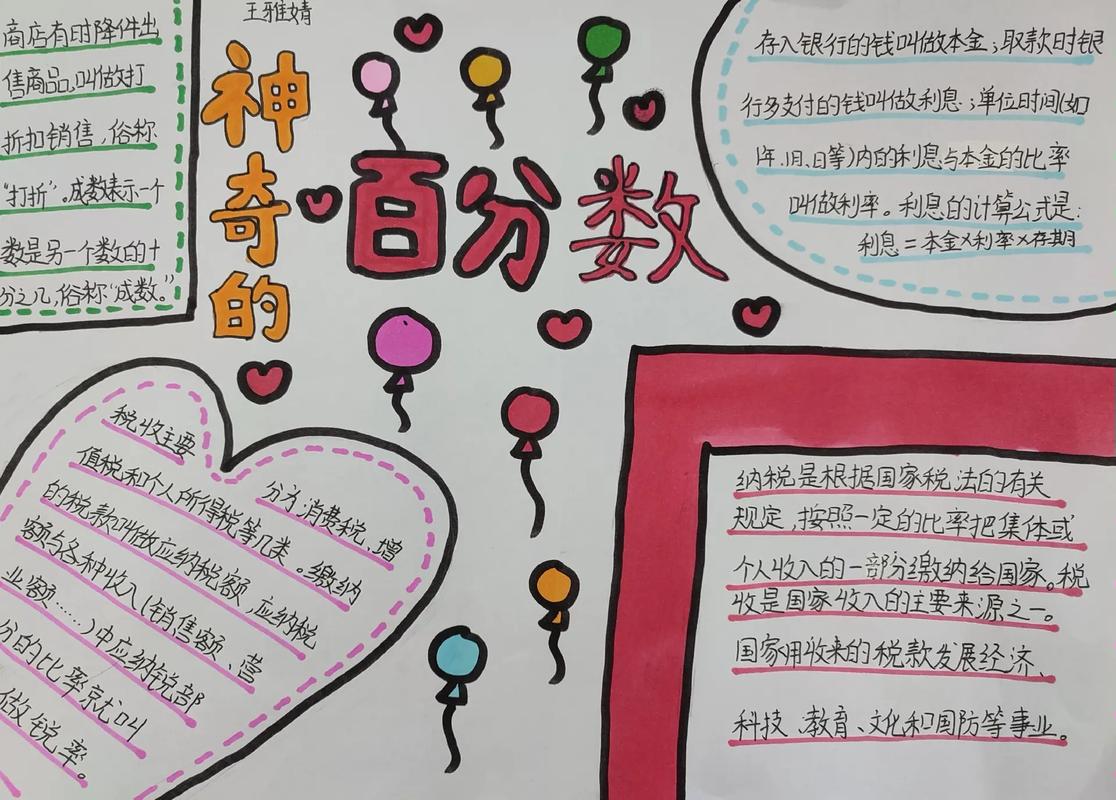 王雅婧
神奇的
百分数
商店有时降件出
售商品,叫做打
折扣销售,俗称
“打折”。成数表示一个
数是另一个数的十
分之几,俗称“成数。”
存入银行的钱叫做本金;取款时银
行多支付的钱叫做利息;单位时间(如
年、月、日等)内的利息与本金的比率
叫做利率。利息的计算公式是:
利息=本金×利率×存期
税收主要
分为消费税,增
值税和个人所得税等几类。缴纳
的税款叫做应纳税额,应纳税
额与各种收入(销售额、营
业额……)中应纳锐部
分的比率就叫
做锐率。
纳税是根据国家税法的有关
规定,按照一定的比率把集体或
个人收入的一部分缴纳给国家。税
收是国家收入的主要来源之一。
国家用收来的税款发展经济、
科技、教育、文化和国防等事业。